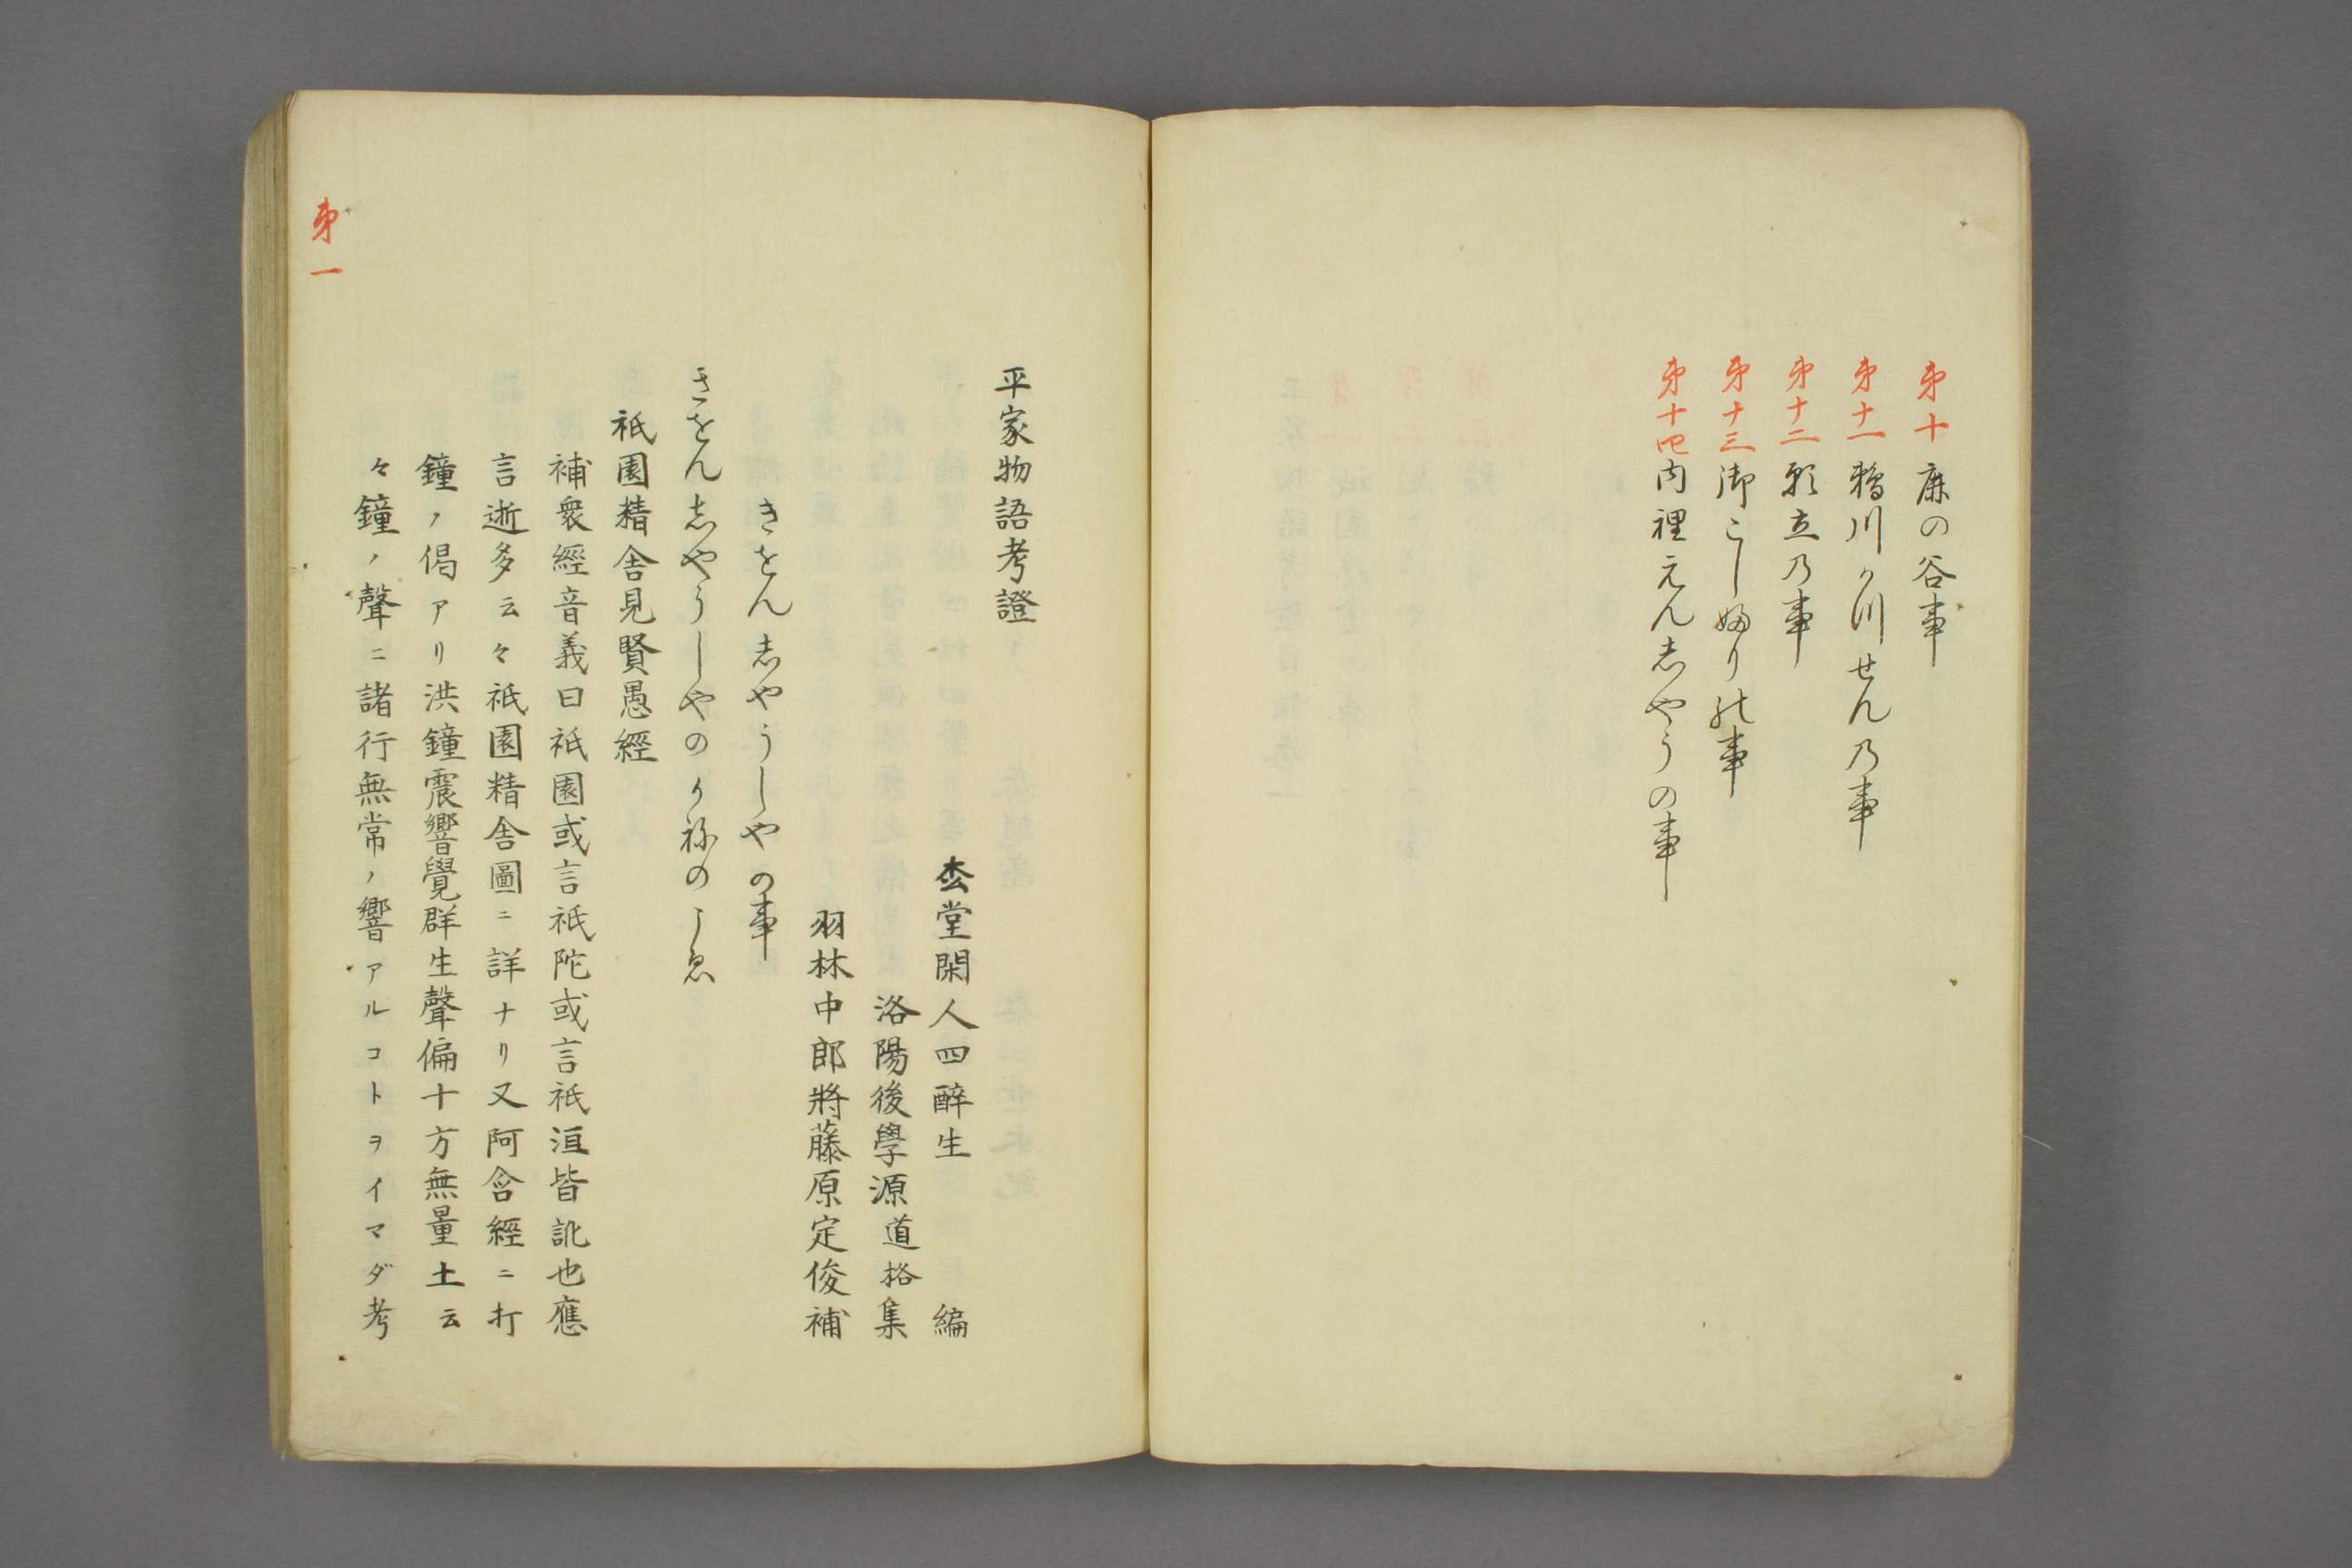 第十 鹿の谷事
第十一 鵜川かつせん乃事
第十二 願立乃事
第十三 御こしふりの事
第十四 内裡えんしやうの事
平家物語考證
枩堂閑人四醉生 編
洛陽後學源道格集
羽林中郎將藤原定俊補
きをんしやうしやの事
きをんしやうしやのかねのこゑ
祇園精舎見賢愚經
補衆經音義曰祇園或言祇陀或言祇洹皆訛也應
言逝多云々祇園精舎圖ニ詳ナリ又阿含經ニ打
鐘ノ偈アリ洪鐘震響覺群生聲偏十方無量土云
々鐘ノ聲ニ諸行無常ノ響アルコトヲイマダ考
第一